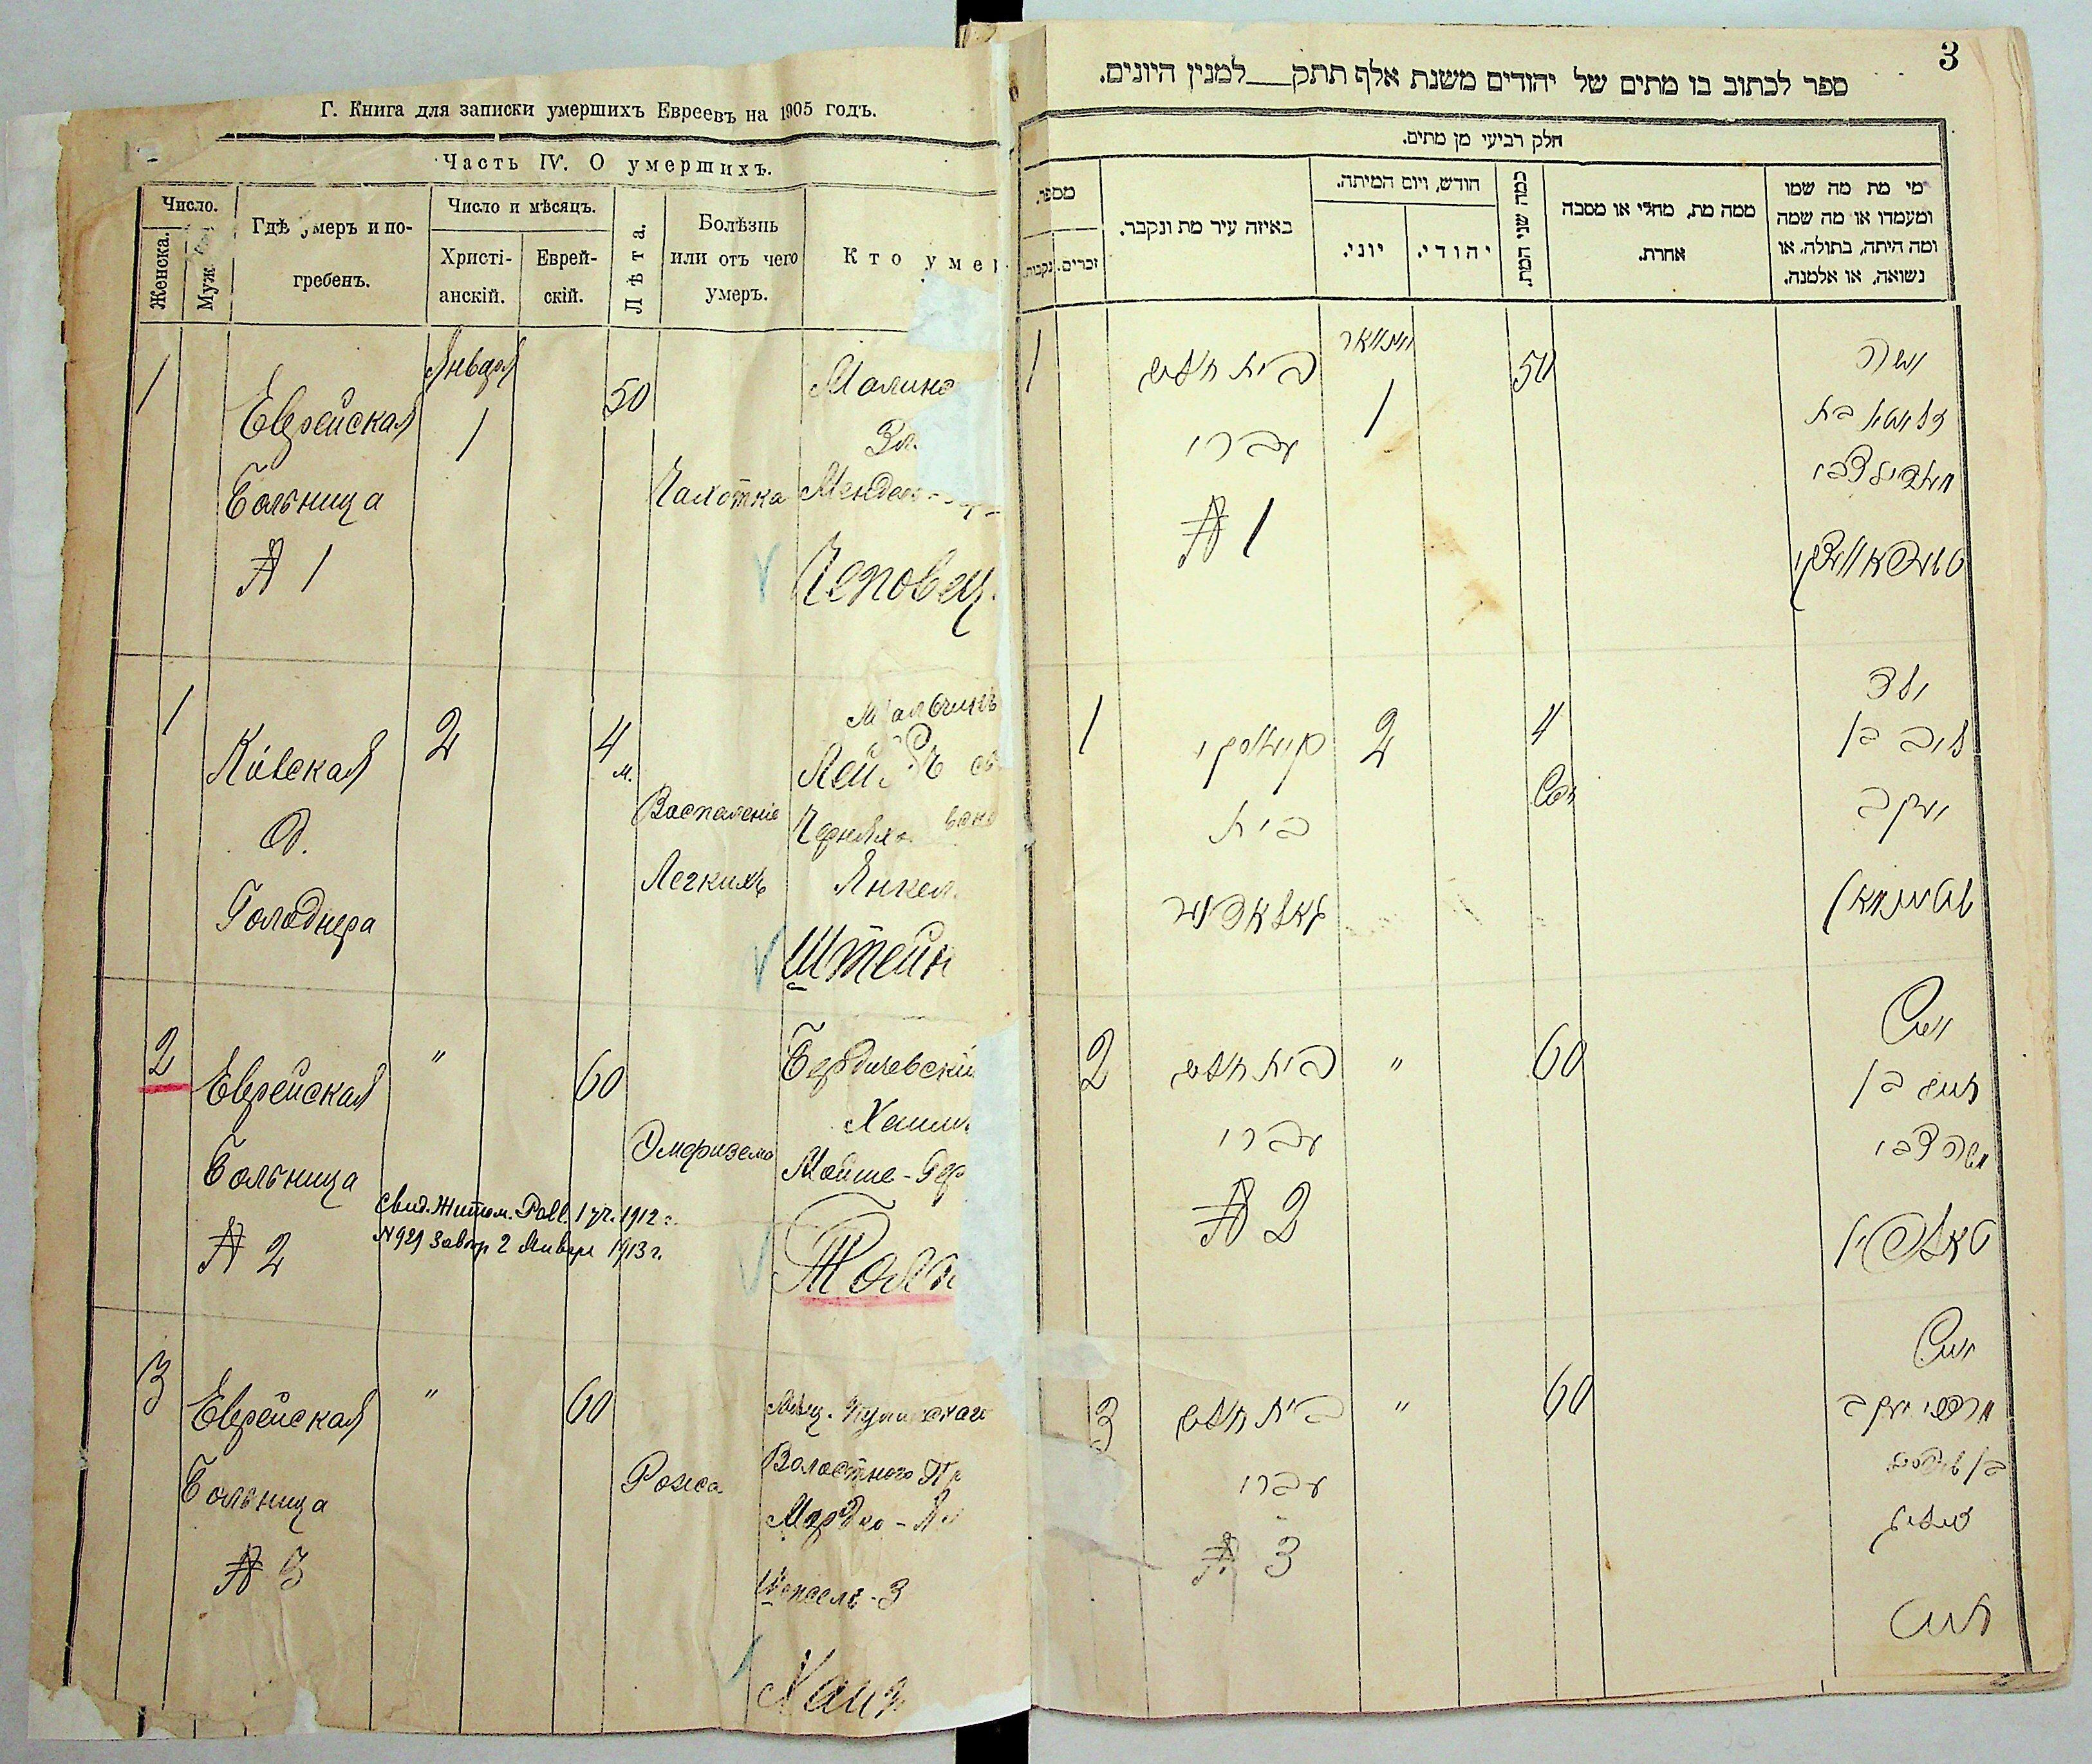 Г. Книга для записки умершихъ Евреевъ на 1905 годъ.
Часть IV. О умершихъ.
Число.
Женска.
Муж.
Гдѣ умеръ и по-
гребенъ.
Число и мѣсяцъ.
Христі-
анскій.
Еврей-
скій.
Лѣта.
Болѣзнь
или отъ чего
умеръ.
Кто умер
1
Еврейская
Больница
№ 1
Января
1
50
Чахотка
Малинс
Зл
Мендел
Чеповец
1
Кіевская
д.
Голоднера
2
4
м.
Воспаленіе
Легкихъ
Мальчикъ
Лей
Черняхо
Янкел
Штейн
2
Еврейская
Больница
№ 2
"
60
Эмфизема
Свид. Житом.
1 уч. 1912 г.
N 921
2 Января 1913 г.
Бердичевскій
Хаим
Мойше-Гер
Толп
3
Еврейская
Больница
№ 3
"
60
Рожа
Волостного Пр
Мордко-Ян
Шепсель-З
Хаит
3
ספר לכתוב בו מתים של יהודים משנת אלף תתק__למנין היונים.
חלק רביעי מן מתים.
מספר.
נקבות.
זכרים.
באיזה עיר מת ונקבר.
חודש, ויום המיתה.
יוני.
יהודי.
כמה שני המת.
ממה מת, מחלי או מסבה
אחרת.
מי מת מה שמו
ומעמדו או מה שמה
ומה היתה, בתולה, או
נשואה, או אלמנה.
1
בית חולים
עברי
№ 1
יאנואר
1
50
אשה
זלאטא בת
1
קיעווסקי
בית
גאלאדנער
2
4
חד׳
ילד
ליב בן
יעקב
שטיינמאן
2
בית חולים
עברי
№ 2
"
60
איש
חיים בן
משה צבי
טאלפין
3
בית חולים
עברי
№ 3
"
60
איש
מרדכי יעקב
חייט